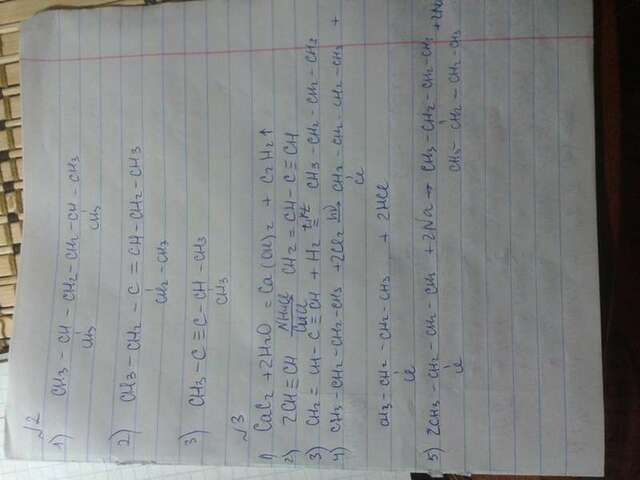 №2
1) CH3 - CH - CH2 - CH2 - CH - CH3
CH3 CH3
2) CH3 - CH2 - C = CH - CH2 - CH3
CH2 - CH3
3) CH3 - C ≡ C - CH - CH3
CH3
№3
1) CaC2 + 2H2O = Ca(OH)2 + C2H2↑
2) 2CH ≡ CH NH4Cl CuCl CH2 = CH - C ≡ CH
3) CH2 = CH - C ≡ CH + H2 = CH3 - CH2 - CH2 - CH3
4) CH3 - CH2 - CH2 - CH3 + 2Cl2 hν CH2 - CH2 - CH2 - CH3 +
Cl
CH3 - CH2 - CH2 - CH3 + 2HCl
Cl
5) 2CH3 - CH2 - CH2 - CH2 + 2Na → CH3 - CH2 - CH2 - CH2
Cl CH3 - CH2 - CH2 - CH2